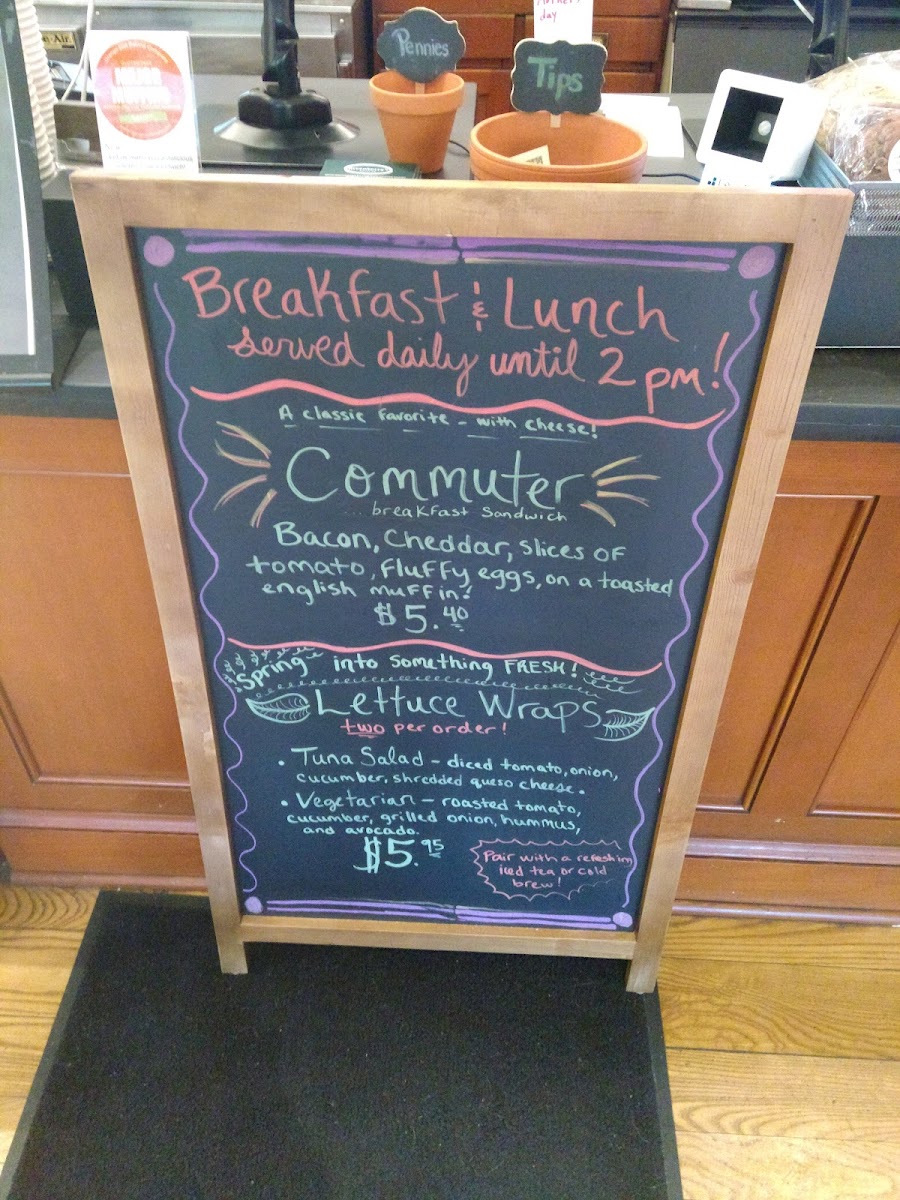 Mother's
day
Pennies
Tips
Breakfast & Lunch
served daily until 2 pm!
A classic favorite - with cheese!
Commuter
...breakfast sandwich
Bacon, Cheddar, slices of
tomato, fluffy eggs, on a toasted
english muffin!
$5.40
Spring into something FRESH!
Lettuce Wraps
two per order!
• Tuna Salad - diced tomato, onion,
cucumber, shredded queso cheese.
• Vegetarian - roasted tomato,
cucumber, grilled onion, hummus,
and avocado.
$5.95
Pair with a refreshing
iced tea or cold
brew!